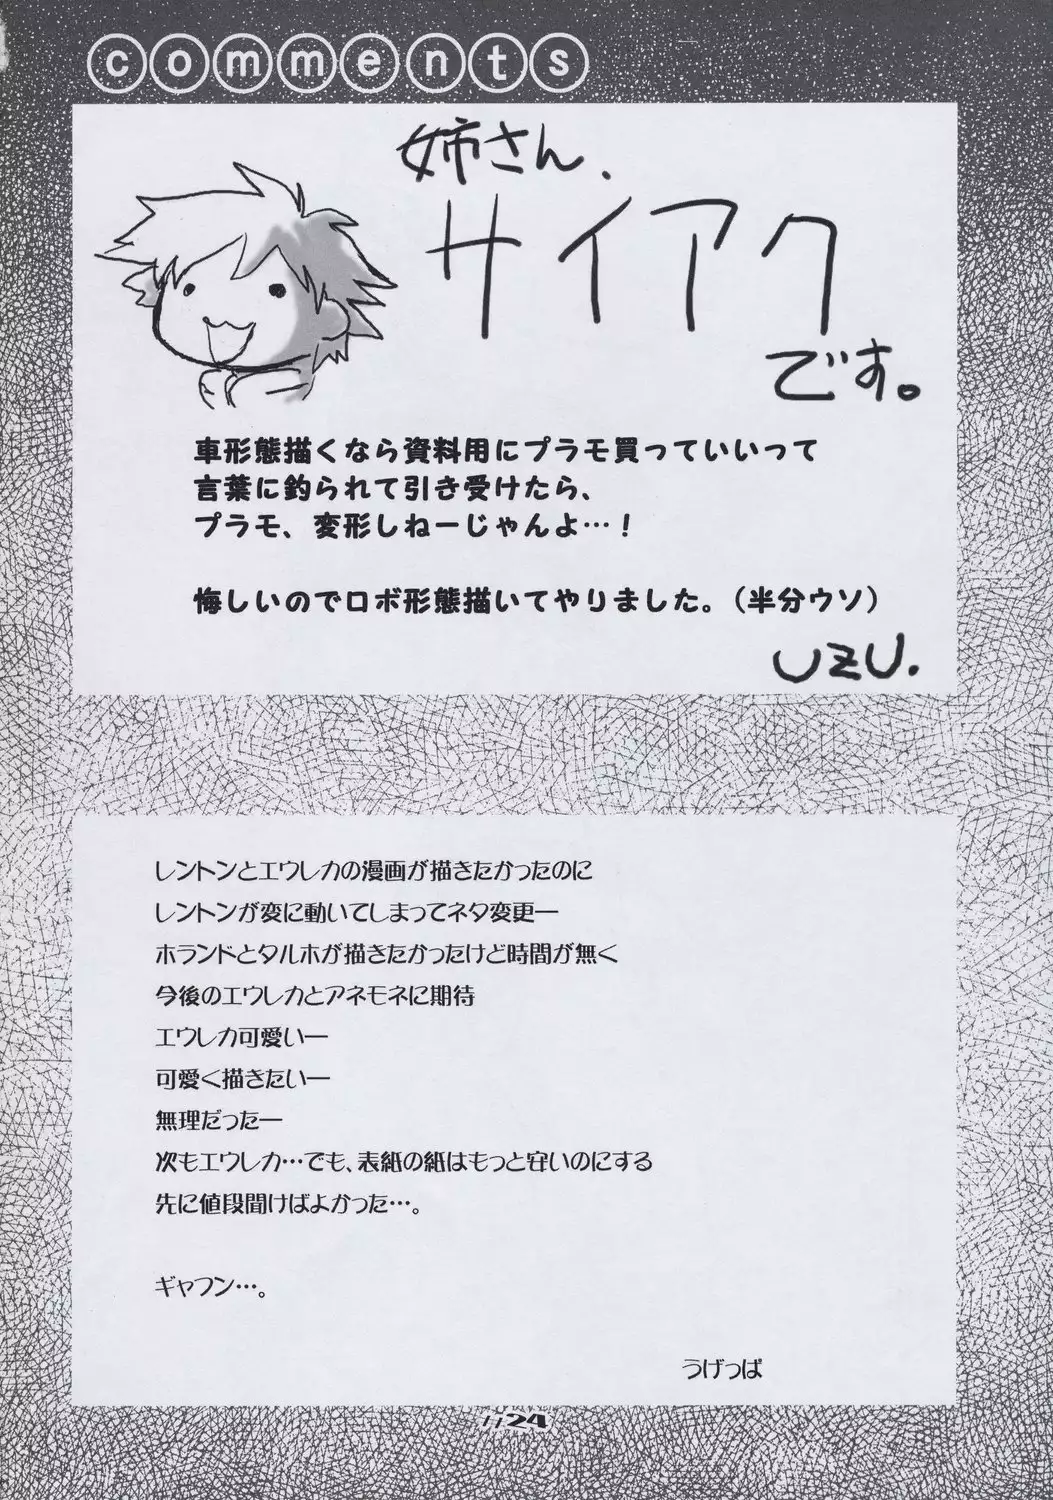 comments
姉さん、
サイアク
です。
車形態描くなら資料用にプラモ買っていいって
言葉に釣られて引き受けたら、
プラモ、変形しねーじゃんよ…！
悔しいのでロボ形態描いてやりました。（半分ウソ）
UZU.
レントンとエウレカの漫画が描きたかったのに
レントンが変に動いてしまってネタ変更ー
ホランドとタルホが描きたかったけど時間が無く
今後のエウレカとアネモネに期待
エウレカ可愛いー
可愛く描きたいー
無理だったー
次もエウレカ…でも、表紙の紙はもっと安いのにする
先に値段聞けばよかった…。
ギャフン…。
うげっぱ
//24